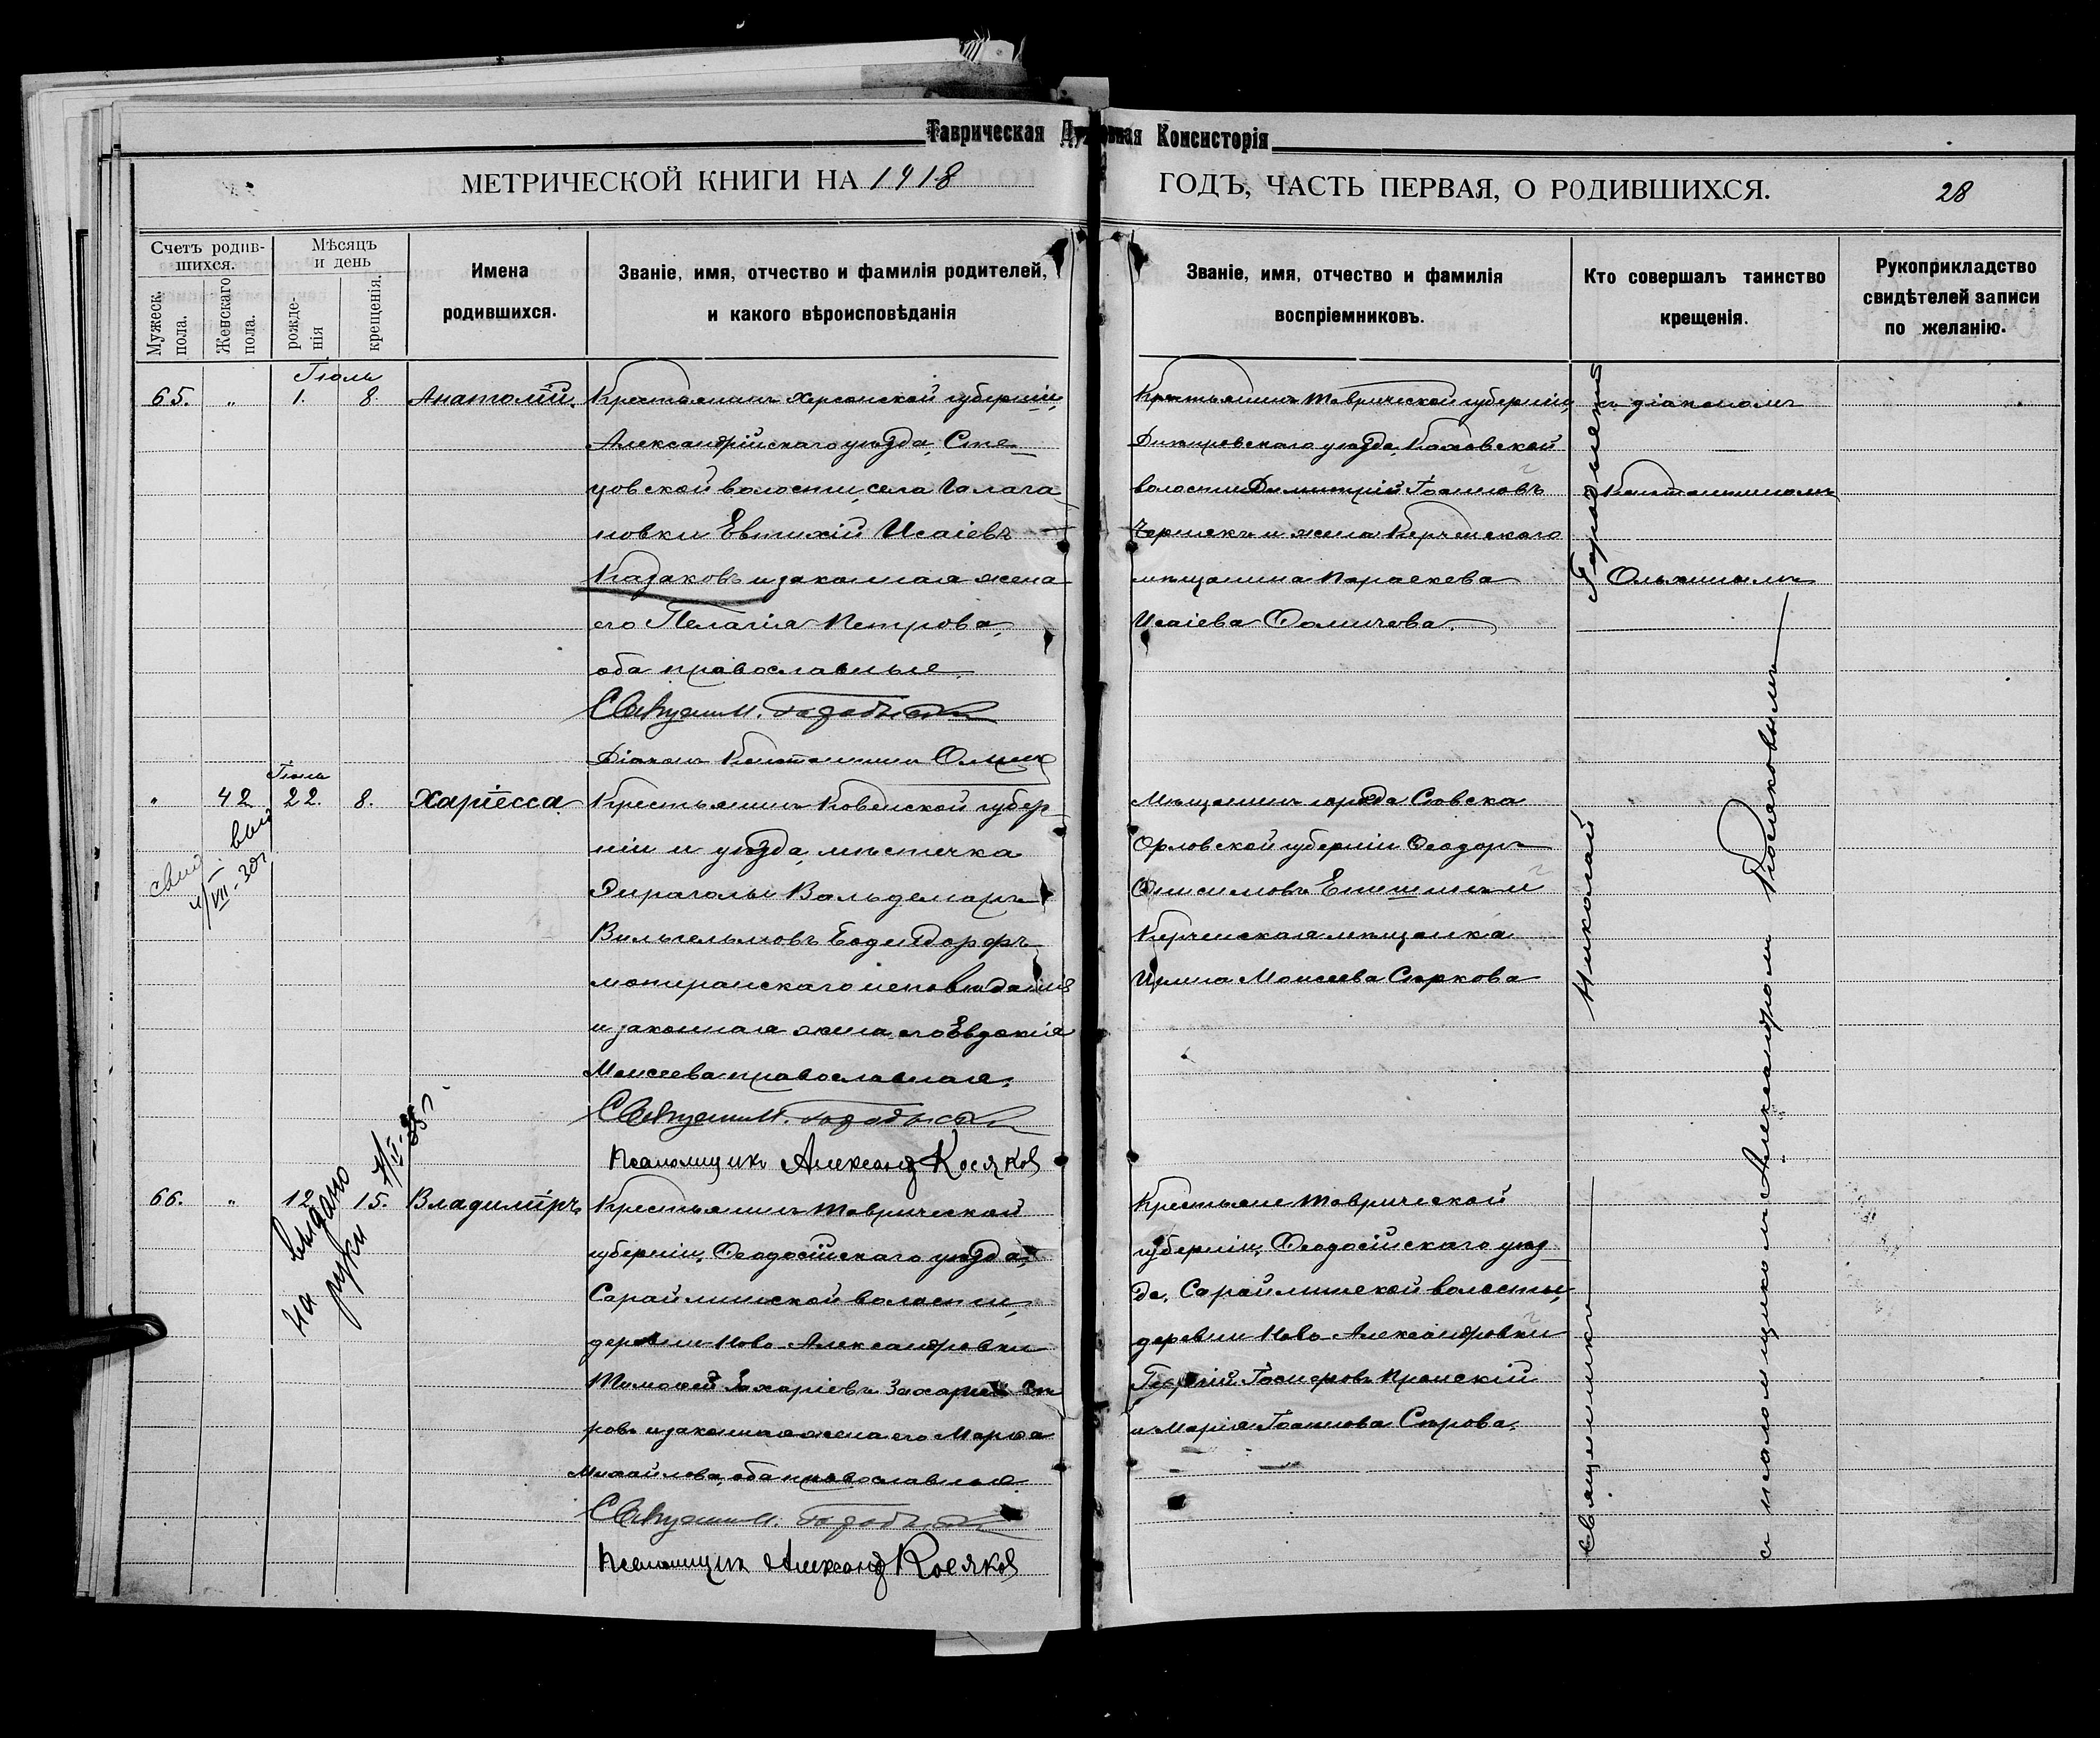 Таврическая Духовная Консисторія
МЕТРИЧЕСКОЙ КНИГИ НА 1918 ГОДЪ, ЧАСТЬ ПЕРВАЯ, О РОДИВШИХСЯ.
28
Счетъ родив-
шихся.
Мужеск. пола.
Женскаго пола.
Мѣсяцъ
и день
рожде-
нія
крещенія.
Имена
родившихся.
Званіе, имя, отчество и фамилія родителей,
и какого вѣроисповѣданія
Званіе, имя, отчество и фамилія
воспріемниковъ.
Кто совершалъ таинство
крещенія.
Рукоприкладство
свидѣтелей записи
по желанію.
Іюль
65. " 1. 8. Анатолій.
Крестьянинъ Херсонской губерніи,
Александрійскаго уѣзда, Сте-
цовской волости, села Галага
новки Евтихій Исаіевъ
Казаковъ и законная жена
его Пелагія Петрова,
оба православные.
Священ. Н.
Діаконъ Константинъ
Крестьянинъ Таврической губерніи,
Днѣпровскаго уѣзда, Каховской
волости Димитрій Іоанновъ
и жена Керченскаго
мѣщанина Параскева
Исаіева Фомичева.
Іюнь
" 42 22. 8. Харіесса.
Крестьянинъ Ковенской губер-
ніи и уѣзда, мѣстечка
Эйраголы Вальдемаръ
Вильгельмовъ
лютеранскаго исповѣданія
и законная жена его Евдокія
Моисеева православная.
Священ. Н.
Псаломщикъ Александръ Косяковъ
Мѣщанинъ города Сѣвска
Орловской губерніи Ѳеодоръ
Онисимовъ Епишинъ и
Керченская мѣщанка
Ирина Моисеева Сѣркова
VII-30г
66. " 12 15. Владиміръ.
Крестьянинъ Таврической
губерніи, Ѳеодосійскаго уѣзда,
Сарайминской волости,
деревни Ново-Александровки
Тимоѳей Захаріевъ
ровъ и законная жена его Марѳа
Михайлова, оба православные.
Священ. Н.
Псаломщикъ Александръ Косяковъ
Крестьяне Таврической
губерніи, Ѳеодосійскаго уѣз-
да, Сарайминской волости,
деревни Ново-Александровки
и Марія Іоаннова Сѣрова.
выдано
на руки
Священникъ Николай
съ діакономъ
Константиномъ
и псаломщикомъ Александромъ Косяковымъ